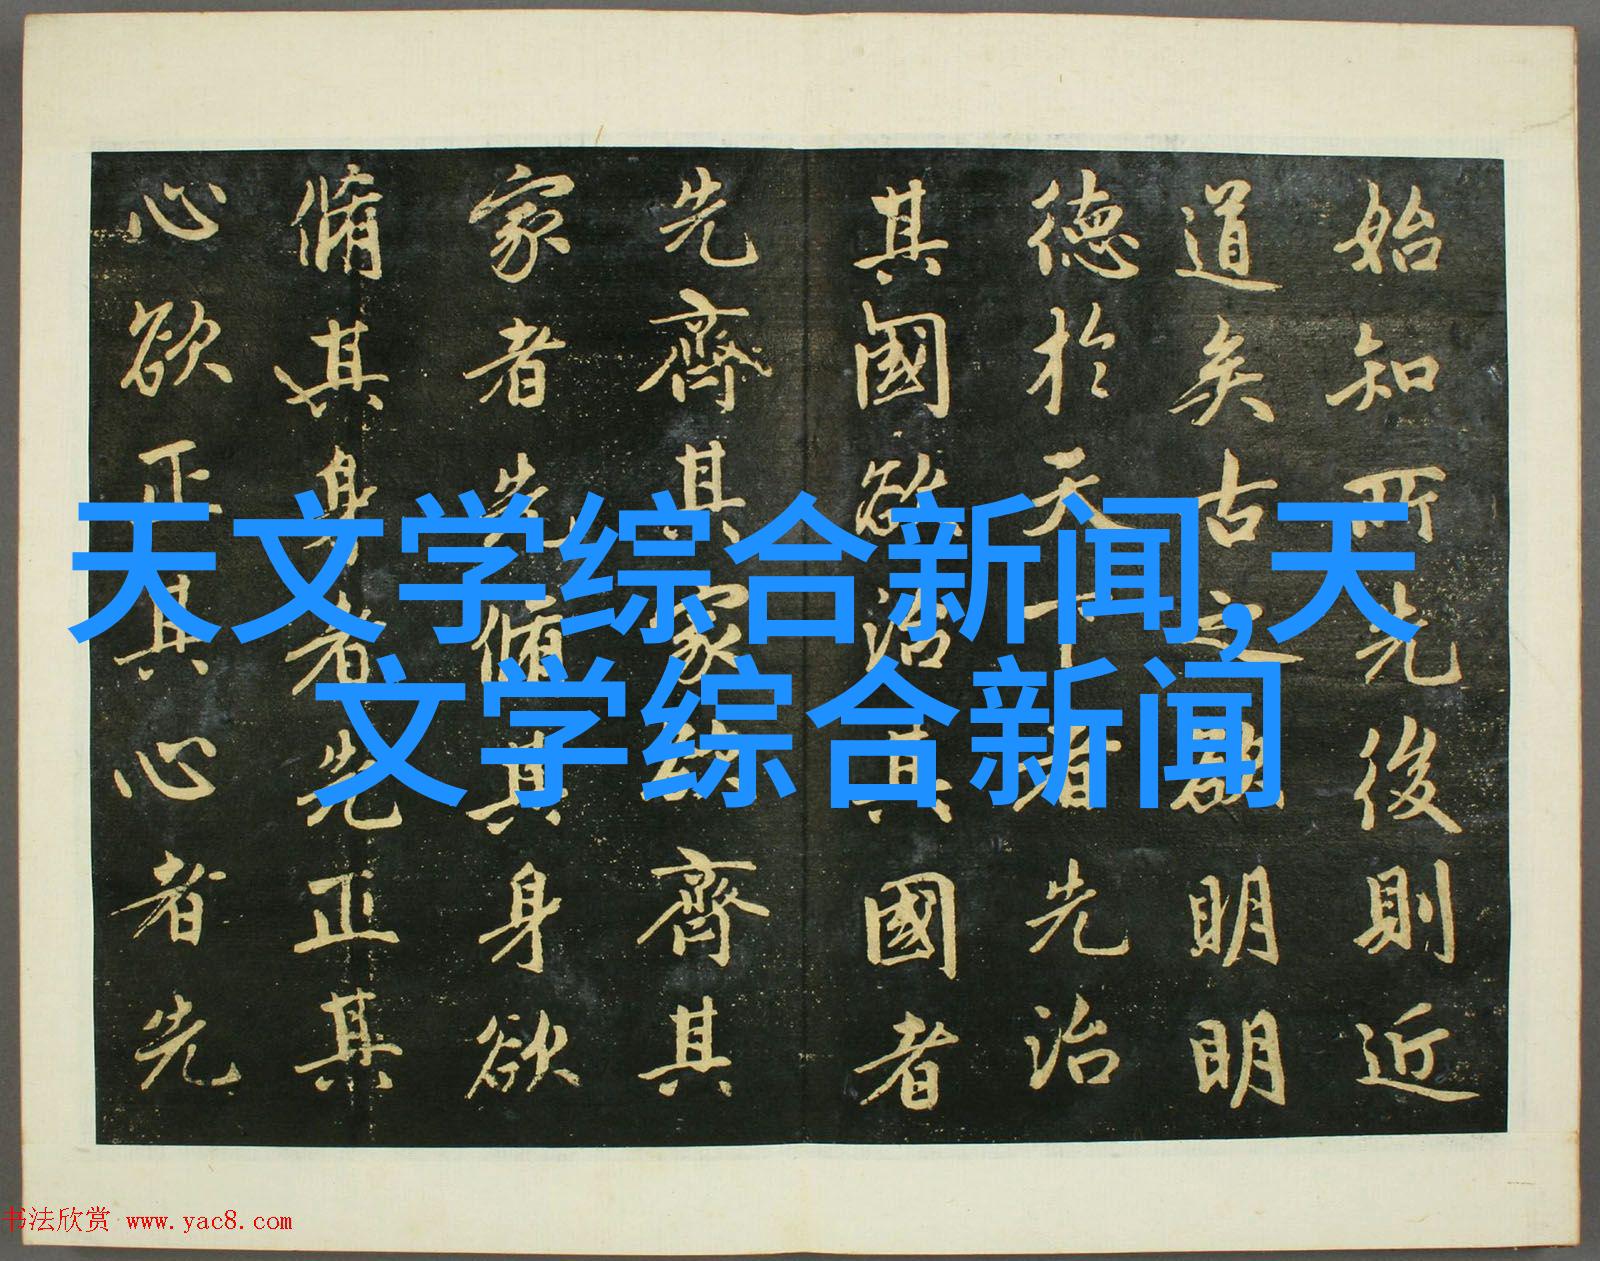 始知所先後則近
道矣古之欲明明
德於天下者先治
其國欲治其國者
先齊其家欲齊其
家者先脩其身欲
脩其身者先正其
心欲正其心者先
天文学综合新闻,天
文学综合新闻
书法欣赏 www.yac8.com